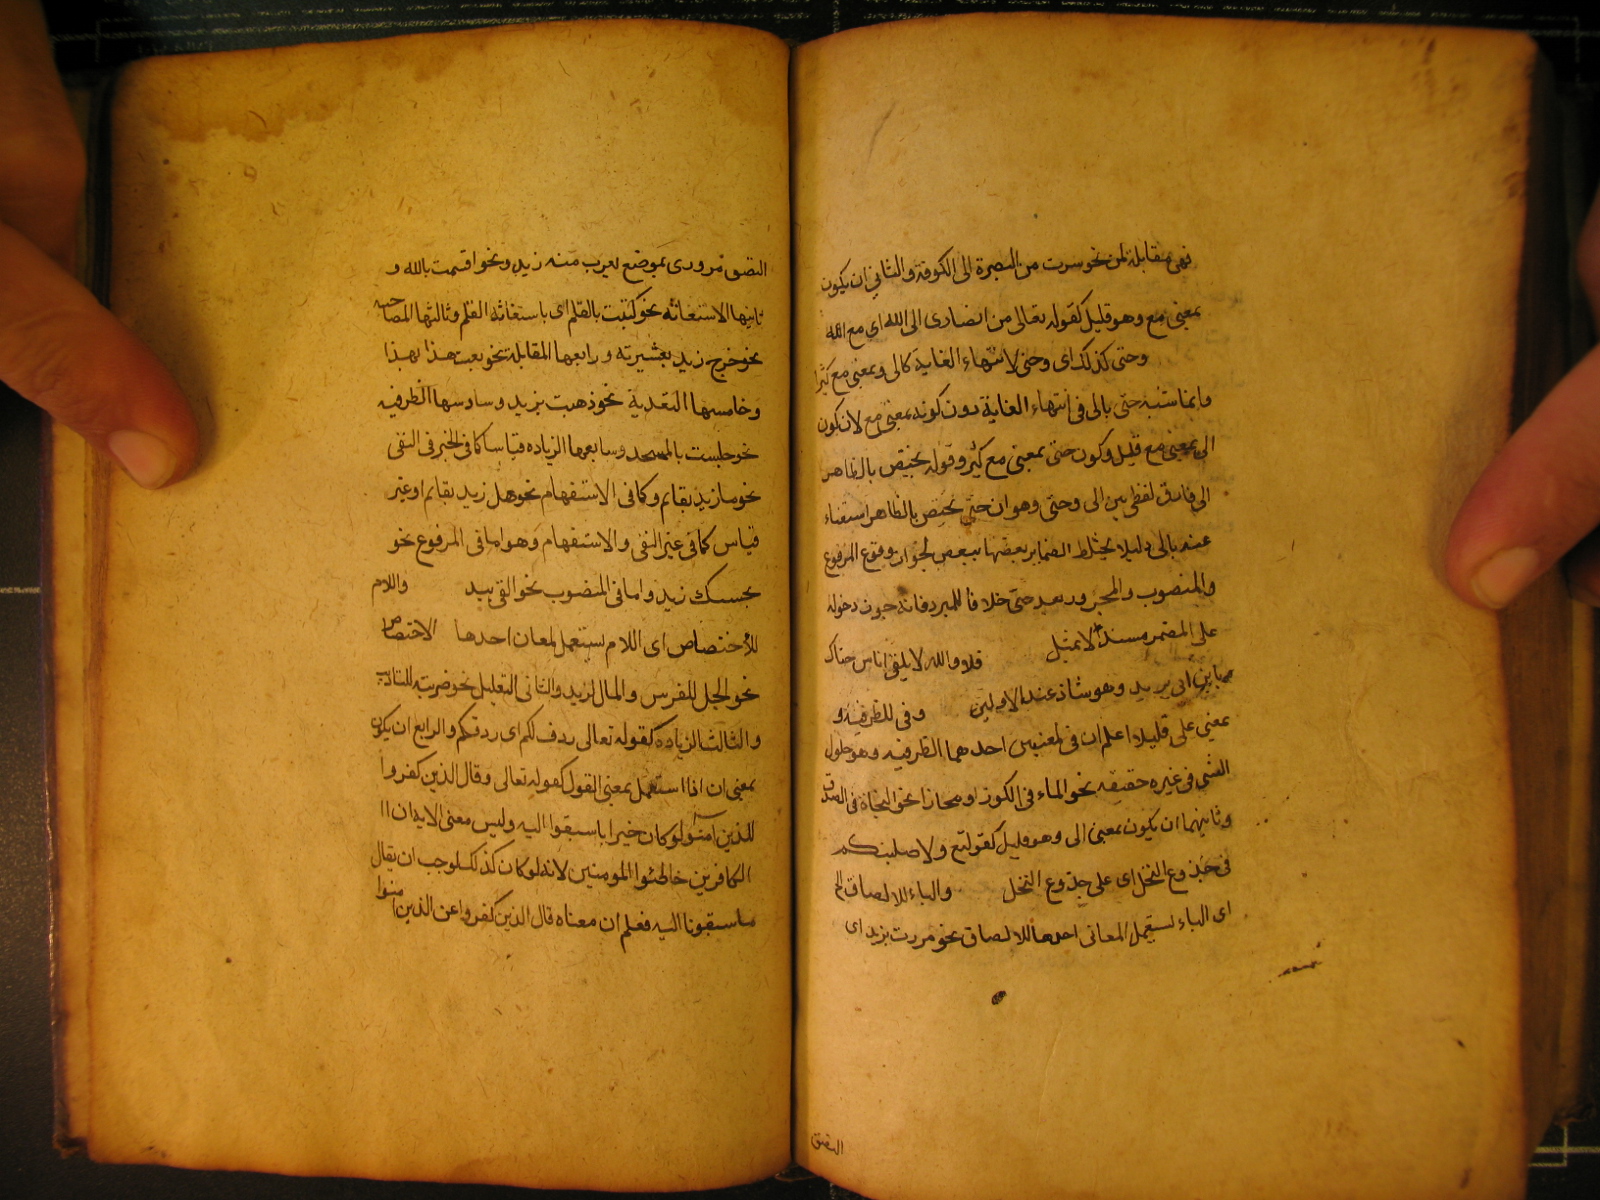 فهى مقابلة لمن نحو سرت من البصرة الى الكوفة والثانى ان يكون
بمعنى مع وهو قليل كقوله تعالى من انصارى الى الله اى مع الله
وحتى كذلك اى وحتى لانتهاء الغاية كالى وبمعنى مع كثيرا
وانما شبه حتى بالى فى انتهاء الغاية دون كونه بمعنى مع لان كون
الى بمعنى مع قليل وكون حتى بمعنى مع كثير وقوله يختص بالظاهر
الى فارق لفظى بين الى وحتى وهو ان حتى تختص بالظاهر استغناء
عنه بالى دليلا يختلط الضماير بعضها ببعض لجواز وقوع المرفوع
والمنصوب والمجرور بعد حتى خلافا للمبرد فانه جوز دخوله
على المضمر مستدلا بمثل فلا والله لا يلقى اناس حتاك
يا بن ابى يزيد وهو شاذ عند الاولين وفى للظرفية و
بمعنى على قليلا اعلم ان فى لمعنيين احدهما الظرفية وهو حلول
الشى فى غيره حقيقة نحو الماء فى الكوز او مجازا نحو النجاة فى الصدق
وثانيهما ان يكون بمعنى الى وهو قليل كقولتع ولاصلبنكم
فى جذوع النخل اى على جذوع النخل والباء للالصاق الخ
اى الباء لستعمل المعانى احدها للالصاق نحو مررت بزيد اى
التصق
التصق مرورى بموضع لعرب منه زيد ونحو اقسمت بالله و
ثانيها الاستعاثه نحو كتبت بالقلم اى باستغاثه القلم وثالثها المصاحبه
نحو خرج زيد بعشيرته ورابعها المقابلة نحو بعت هذا بهذا
وخامسها التعدية نحو ذهبت بزيد وسادسها الظرفيه
نحو جلست بالمسجد وسابعها الزياده قياسا كما فى الخبر فى النفى
نحو ما زيد بقائم وكما فى الاستفهام نحو هل زيد بقائم او غير
قياس كما فى غير النفى والاستفهام وهو اما فى المرفوع نحو
بحسبك زيد واما فى المنصوب نحو القى بيد واللام
للاختصاص اى اللام ستعمل لمعان احدها الاختصاص
نحو الجل للفرس والمال لزيد والثانى التعليل نحو ضربته للتاديب
والثالث الزيادة كقوله تعالى ردف لكم اى ردفكم والرابع ان يكون
بمعنى ان اذا استعمل بمعنى القول كقوله تعالى وقال الذين كفروا
للذين آمنوا لو كان خيرا ما سبقوا اليه وليس معنى الايه ان اا
الكافرين خاطبوا المومنين لانه لو كان كذلك لوجب ان يقال
ما سبقونا اليه فعلم ان معناه قال الذين كفروا عن الذين امنوا